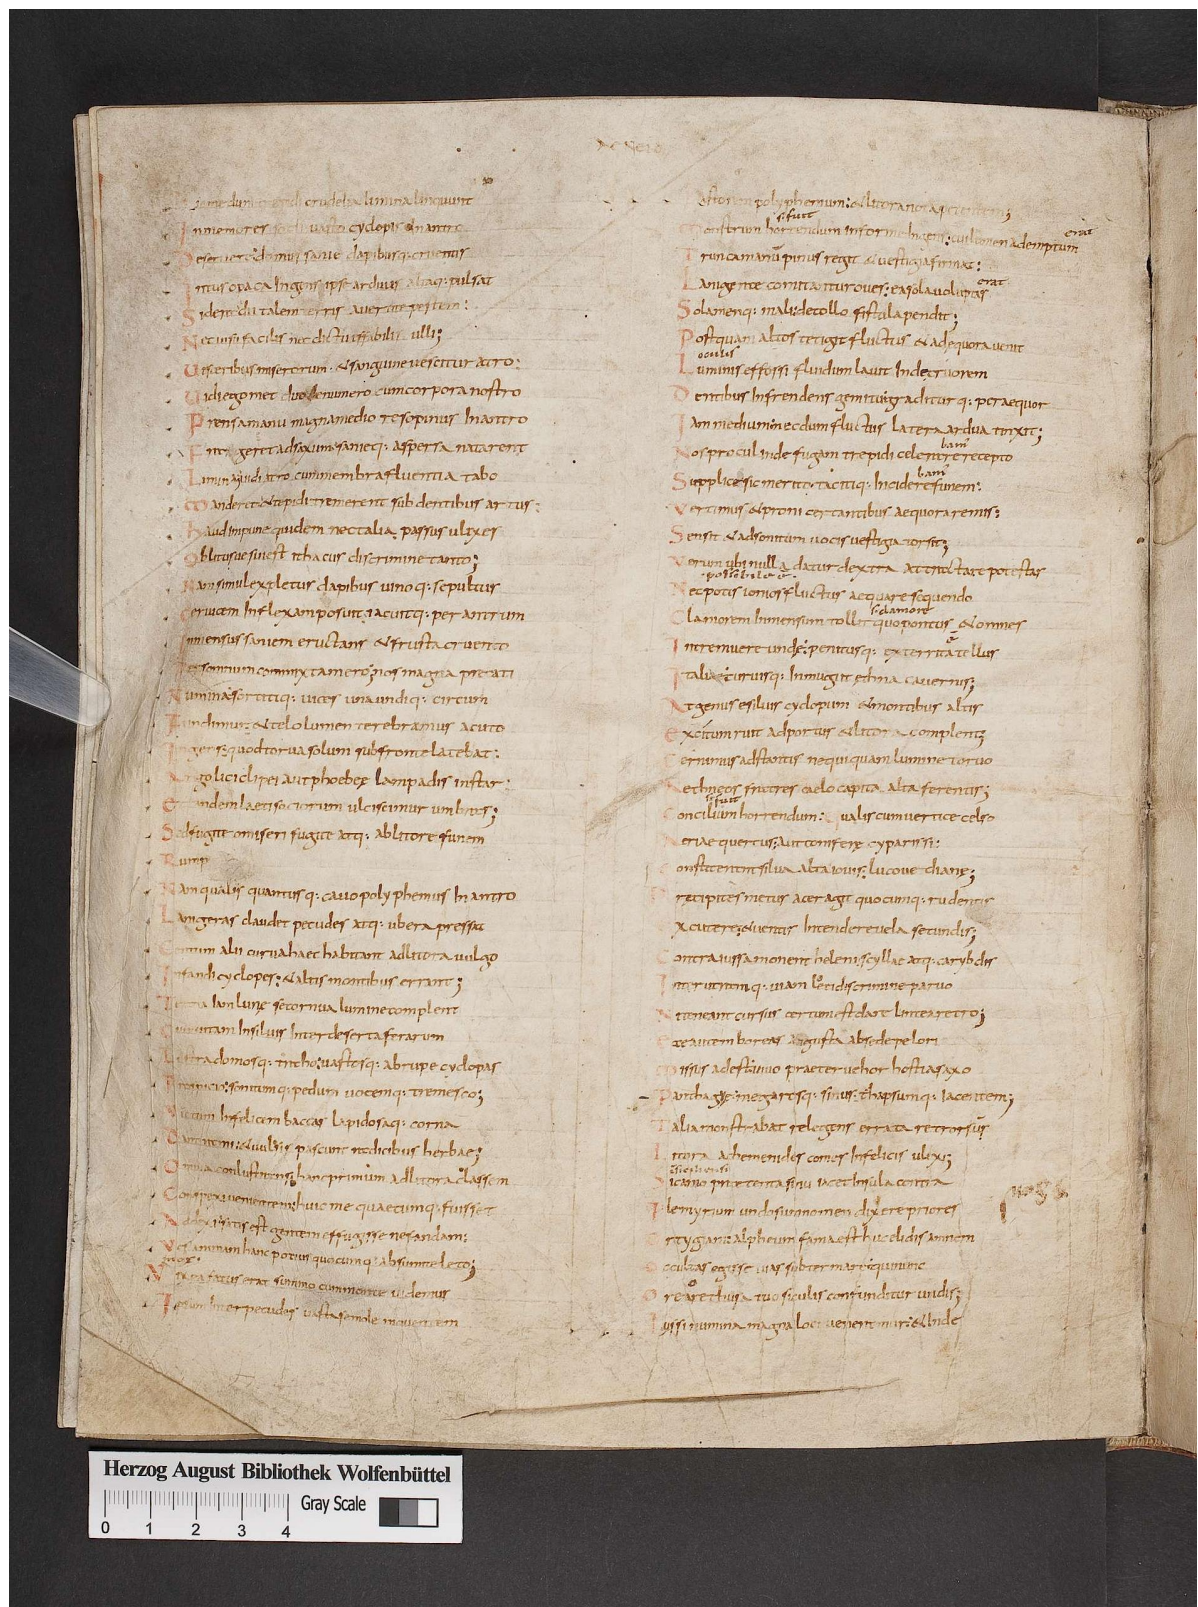 Hic me dum trepidi crudelia limina linquunt
Inmemores socii uasto cyclopis & nantro
Deseruere: domus sanie dapibusq: cruentis
Intus opaca Ingens ipse arduus altaq: pulsat
Sidera dii talem terris auertite pestem:
Nec uisu facilis nec dictu effabilis ulli;
Uisceribus miserorum & sanguine uescitur atro:
Uidi egomet duo denumero cum corpora nostro
Prensa manu magna medio resopinus In antro
Frangeret ad saxum: sanieq: aspersa natarent
Limina uidi atro cum membra fluentia tabo
Manderet & tepidi tremerent sub dentibus artus:
Haud Impune quidem nec talia passus ulixes
Oblitusue sui est ithacus discrimine tanto;
Nam simul expletus dapibus uino q: sepultus
Ceruicem Inflexam posuit iacuitq: per antrum
Inmensus saniem eructans & frusta cruento
Per somnum commixta mero: nos magna precati
Numina sortitiq: uices una undiq: circum
Fundimur: & telo lumen terebramus acuto
Ingens: quod torua solum sub fronte latebat:
Argolici clipei aut phoebeę lampadis instar:
Et tandem laeti sociorum ulciscimur umbras;
Sed fugite o miseri fugite atq: ab litore funem
Rump
Nam qualis quantus q: cauo polyphemus In antro
Lanigeras claudet pecudes atq: ubera pressat
Centum alii curua haec habitant ad litora uulgo
Infandi cyclopes: & altis montibus errant;
Tertia Iam lunę se cornua lumine complent
Cum uitam In siluis Inter deserta ferarum
Lustra domosq: traho: uastosq: ab rupe cyclopas
Prospicio: sonitumq: pedum uocemq: tremesco;
Victum Infelicem baccas lapidosaq: corna
Dant rami: & uulsis pascunt radicibus herbae;
Omnia conlustrans: hanc primum ad litora classem
Conspexi uenientem: huic me quaecumq: fuisset
Addixi: satis est gentem effugisse nefandam:
Vos animam hanc potius quocumq: absumite leto;
mox
Vix ea fatus erat summo cum monte uidemus
Ipsum Inter pecudes uasta se mole mouentem
Pastorem polyphemum: & litora nota petentem;
s. fuit erat
Monstrum horrendum Informe Ingens: cui lumen ademptum
Trunca manū pinus regit & uestigia firmat:
erat
Lanigerae comitantur oues: ea sola uoluptas
Solamenq: mali: de collo fistula pendit;
Postquam altos tetigit fluctus & ad ęquora uenit
oculis
Luminis effossi fluidum lauit Inde cruorem
Dentibus Infrendens gemitu: graditurq: per aequor
Iam medium: necdum fluctus latera ardua tinxit;
bam
Nos procul inde fugam trepidi celerare recepto
bam
Supplice sic merito: tacitiq: Incidere funem:
Vertimus & proni certantibus aequora remis:
Sensit & ad sonitum uocis uestigia torsit;
Verum ubi nulla datur dextra attrectare potestas
possibile ē
Nec potis ionios fluctus aequare sequendo
s. clamore
Clamorem Inmensum tollit quo pontus & omnes
Intremuere undę: penitusq: exterrita tellus
Italiae: curuisq: Inmugiit ęthna cauernis;
At genus e siluis cyclopum & montibus altis
Excitum ruit ad portus & litora complent;
Cernimus adstantis nequiquam lumine toruo
Aethneos fratres caelo capita alta ferentis;
s. fuit
Concilium horrendum: Qualis cum uertice celso
Aeriae quercus: aut coniferę cyparissi:
Constiterunt silua alta iouis: lucoue dianę;
Precipites metus acer agit quocumq: rudentis
Excutere: & uentis Intendere uela secundis;
Contra iussa monent heleni: scyllae atq: carybdis
Inter utrumq: uiam leti discrimine paruo
Ni teneant cursus certum est dare lintea retro;
Ecce autem boreas angusta ab sede pelori
Missus adest: uiuo praeteruehor hostia saxo
Panthagię: megarosq: sinus: thapsumq: Iacentem;
Talia monstrabat relegens errata retrorsus
Litora achemenides comes Infelicis ulixi;
Sicanio pretenta sinu iacet Insula contra
Plemyrium undosum nomen dixere priores
Ortygiam: alpheum fama est huc elidis amnem
Occultas egisse uias subter mare: qui nunc
Ore arethusa tuo siculis confunditur undis;
Iussi numina magna loci ueneramur: & Inde
Herzog August Bibliothek Wolfenbüttel
Gray Scale
0 1 2 3 4